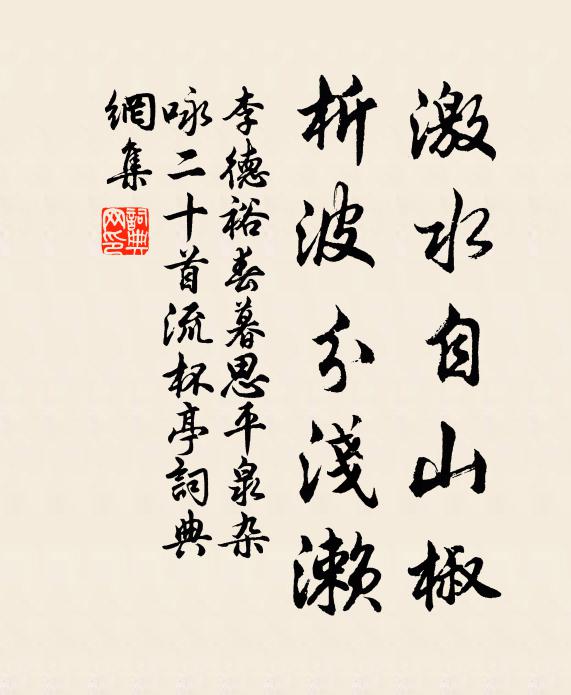 激水自山椒
析波分淺瀨
李德裕春暮思平泉杂
咏二十首流杯亭詞典
網集
詞典网印